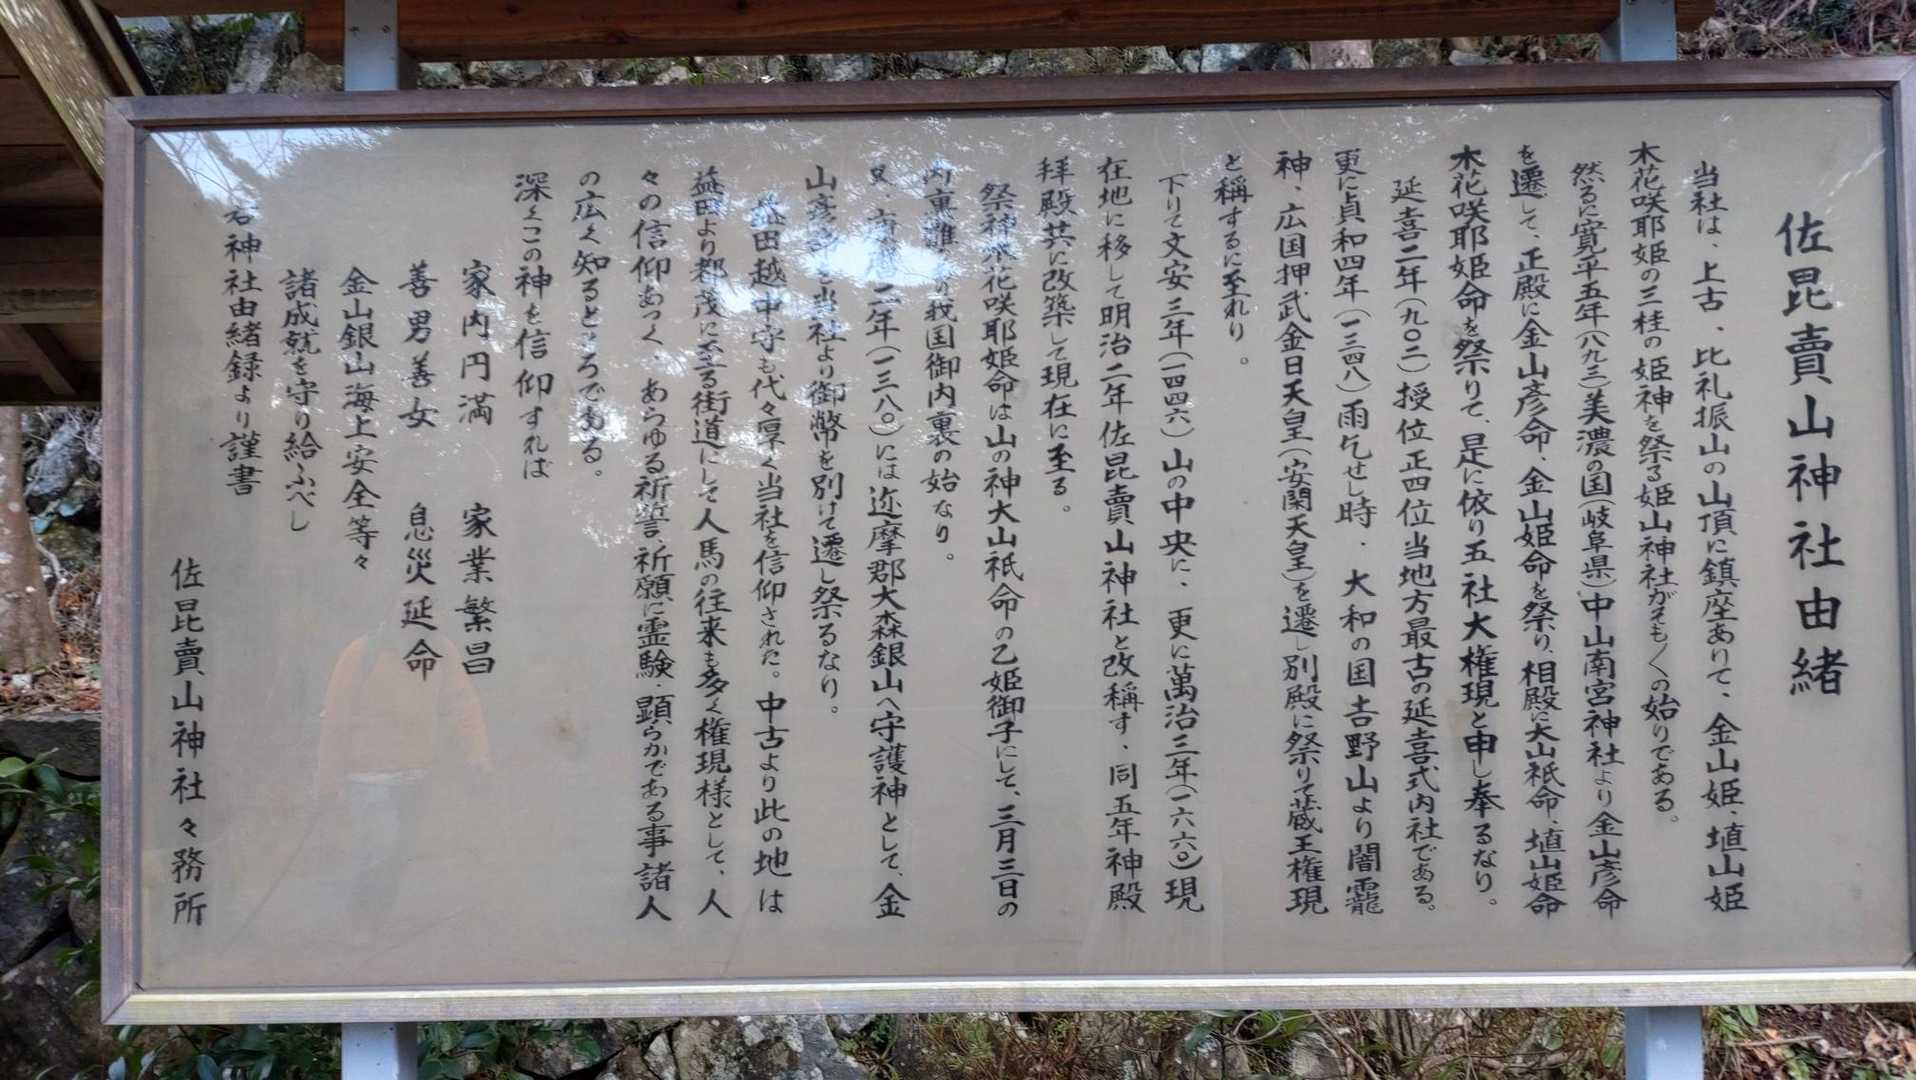 佐毘賣山神社由緒
当社は、上古、比礼振山の山頂に鎮座ありて、金山姫、埴山姫
木花咲耶姫の三柱の姫神を祭る姫山神社がそも〱の始りである。
然るに寛平五年(八九三)美濃の国(岐阜県)中山南宮神社より金山彦命
を遷して、正殿に金山彦命、金山姫命を祭り、相殿に大山祇命、埴山姫命
木花咲耶姫命を祭りて、是に依り五社大権現と申し奉るなり。
延喜二年(九〇二)授位正四位当地方最古の延喜式内社である。
更に貞和四年(一三四八)雨乞せし時、大和の国吉野山より闇靇
神、広国押武金日天皇(安閑天皇)を遷し別殿に祭りて蔵王権現
と稱するに至れり。
下りて文安三年(一四四六)山の中央に、更に萬治三年(一六六〇)現
在地に移して明治二年佐毘賣山神社と改稱す、同五年神殿
拝殿共に改築して現在に至る。
祭神木花咲耶姫命は山の神大山祇命の乙姫御子にして、三月三日の
内裏雛は我国御内裏の始なり。
又、康暦二年(一三八〇)には迩摩郡大森銀山へ守護神として、金
山彦命を当社より御幣を別けて遷し祭るなり。
益田越中守も代々厚く当社を信仰された。中古より此の地は
益田より都茂に至る街道にして人馬の往来も多く権現様として、人
々の信仰あつく、あらゆる祈誓、祈願に霊験顕らかである事諸人
の広く知るところである。
深くこの神を信仰すれば
家内円満 家業繁昌
善男善女 息災延命
金山銀山海上安全等々
諸成就を守り給ふべし
右神社由緒録より謹書
佐毘賣山神社々務所